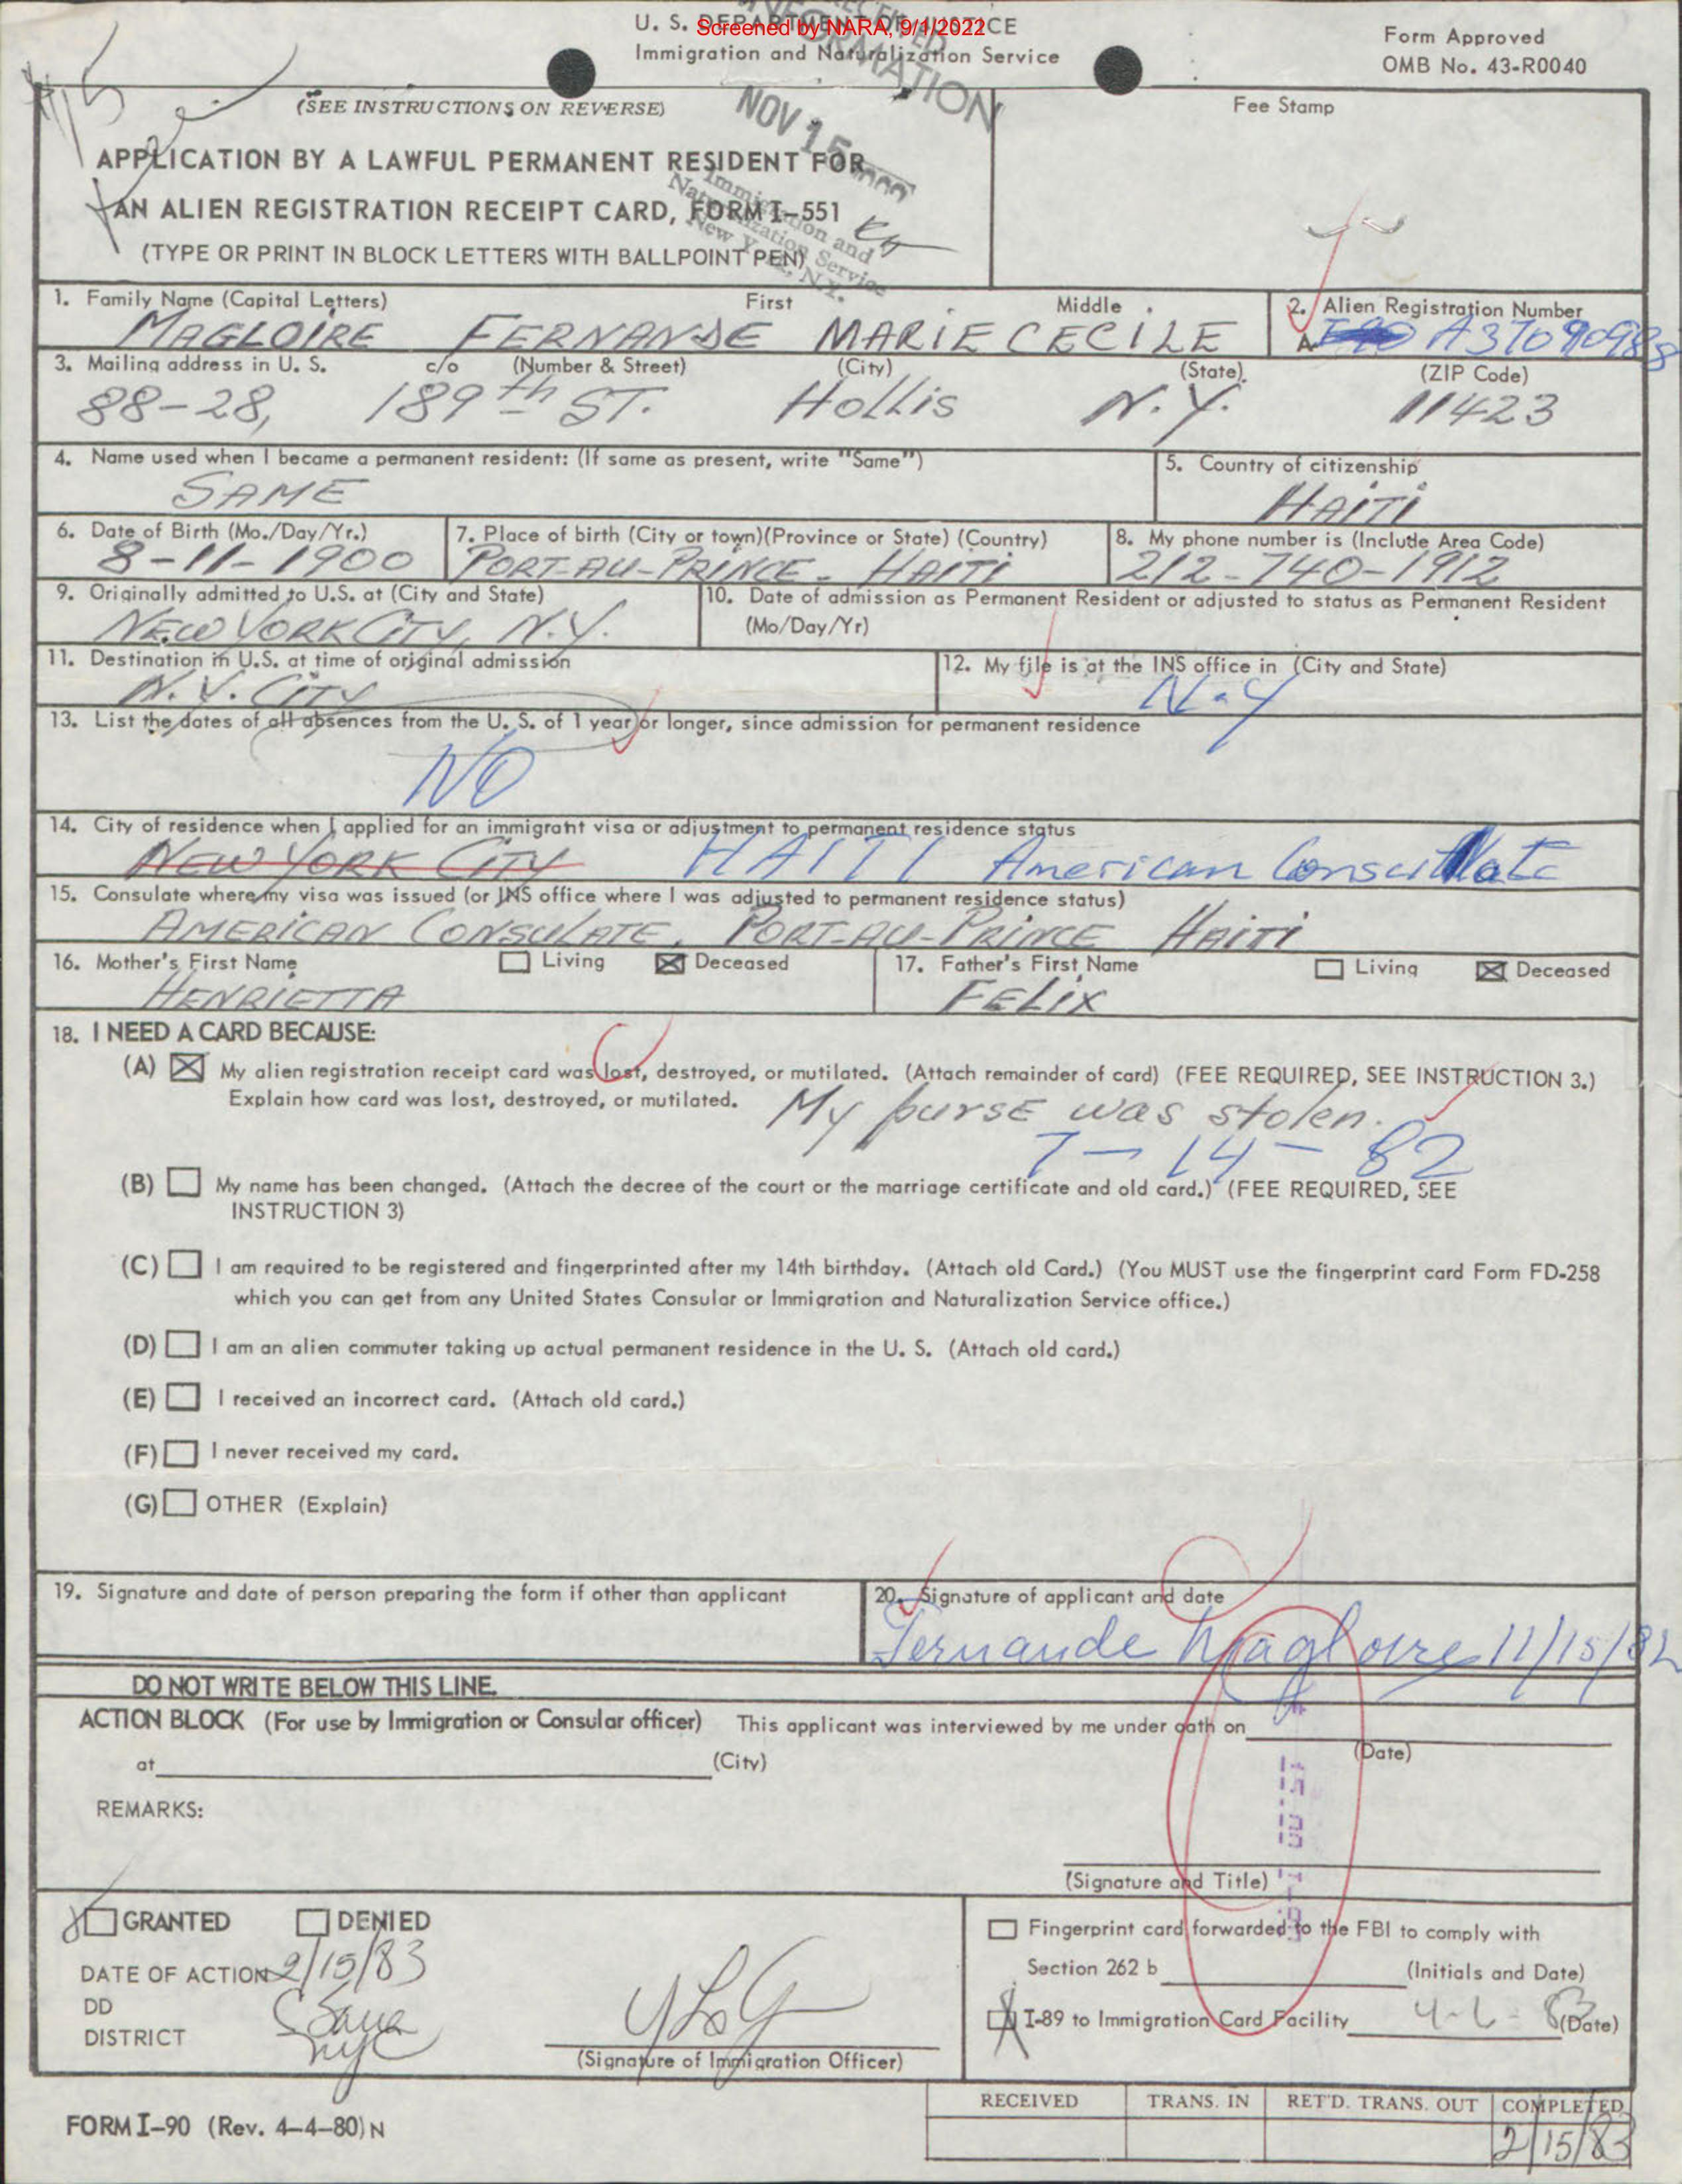 U. S. DEPARTMENT OF JUSTICE
Screened by NARA, 9/1/2022
Immigration and Naturalization Service
Form Approved
OMB No. 43-R0040
RECEIVED
INFORMATION
NOV 15
Immigration and
Naturalization Service
New York, N.Y.
(SEE INSTRUCTIONS ON REVERSE)
Fee Stamp
APPLICATION BY A LAWFUL PERMANENT RESIDENT FOR
AN ALIEN REGISTRATION RECEIPT CARD, FORM I-551
(TYPE OR PRINT IN BLOCK LETTERS WITH BALLPOINT PEN)
1. Family Name (Capital Letters) First Middle 2. Alien Registration Number
MAGLOIRE FERNANDE MARIE CECILE A37090988
3. Mailing address in U. S. c/o (Number & Street) (City) (State) (ZIP Code)
88-28, 189th ST. Hollis N.Y. 11423
4. Name used when I became a permanent resident: (If same as present, write "Same") 5. Country of citizenship
SAME HAITI
6. Date of Birth (Mo./Day/Yr.) 7. Place of birth (City or town)(Province or State) (Country) 8. My phone number is (Include Area Code)
8-11-1900 PORT-AU-PRINCE - HAITI 212-740-1912
9. Originally admitted to U.S. at (City and State) 10. Date of admission as Permanent Resident or adjusted to status as Permanent Resident
NEW YORK CITY, N.Y. (Mo/Day/Yr)
11. Destination in U.S. at time of original admission 12. My file is at the INS office in (City and State)
N.Y. CITY N-Y
13. List the dates of all absences from the U. S. of 1 year or longer, since admission for permanent residence
NO
14. City of residence when I applied for an immigrant visa or adjustment to permanent residence status
NEW YORK CITY HAITI American Consulate
15. Consulate where my visa was issued (or INS office where I was adjusted to permanent residence status)
AMERICAN CONSULATE, PORT-AU-PRINCE HAITI
16. Mother's First Name Living Deceased 17. Father's First Name Living Deceased
HENRIETTA FELIX
18. I NEED A CARD BECAUSE:
(A) My alien registration receipt card was lost, destroyed, or mutilated. (Attach remainder of card) (FEE REQUIRED, SEE INSTRUCTION 3.)
Explain how card was lost, destroyed, or mutilated. My purse was stolen.
7-14-82
(B) My name has been changed. (Attach the decree of the court or the marriage certificate and old card.) (FEE REQUIRED, SEE
INSTRUCTION 3)
(C) I am required to be registered and fingerprinted after my 14th birthday. (Attach old Card.) (You MUST use the fingerprint card Form FD-258
which you can get from any United States Consular or Immigration and Naturalization Service office.)
(D) I am an alien commuter taking up actual permanent residence in the U. S. (Attach old card.)
(E) I received an incorrect card. (Attach old card.)
(F) I never received my card.
(G) OTHER (Explain)
19. Signature and date of person preparing the form if other than applicant 20. Signature of applicant and date
Fernande Magloire 11/15/82
DO NOT WRITE BELOW THIS LINE.
ACTION BLOCK (For use by Immigration or Consular officer) This applicant was interviewed by me under oath on
(Date)
at (City)
REMARKS:
(Signature and Title)
GRANTED DENIED
DATE OF ACTION 2/15/83
DD
DISTRICT NYC
(Signature of Immigration Officer)
Fingerprint card forwarded to the FBI to comply with
Section 262 b (Initials and Date)
I-89 to Immigration Card Facility 4-6-83 (Date)
RECEIVED TRANS. IN RET'D. TRANS. OUT COMPLETED
2/15/83
FORM I-90 (Rev. 4-4-80) N